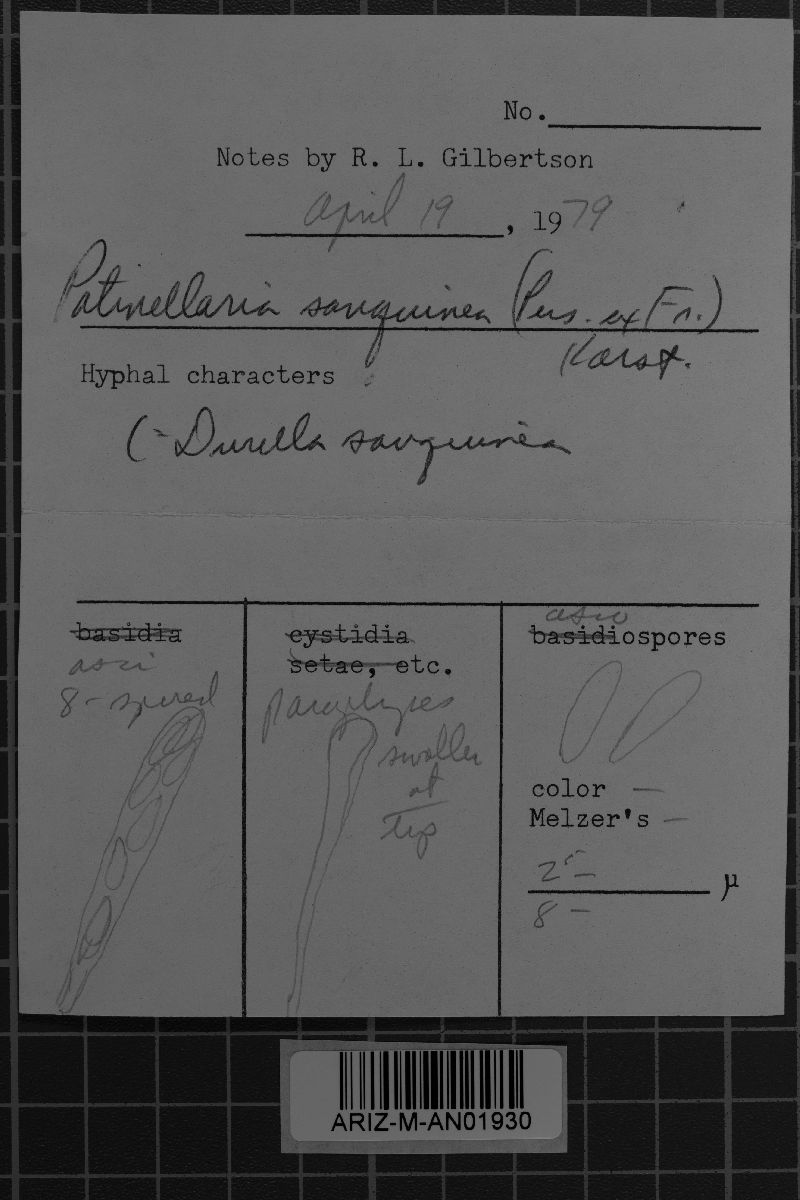 No.
Notes by R. L. Gilbertson
April 19, 1979
Patinellaria sanguinea (Pers. ex Fr.)
Karst.
Hyphal characters
(= Durella sanguinea
basidia
asci
8-spored
cystidia
setae, etc.
paraphyses
swollen
at
tip
asco
basidiospores
color —
Melzer's —
25 —
µ
8 —
ARIZ-M-AN01930